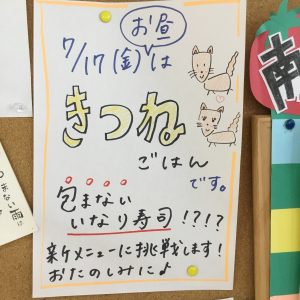 お昼
7/17(金)は
きつね
ごはん
です。
包まない
いなり寿司!?!?
新メニューに挑戦します!
おたのしみに♪
南